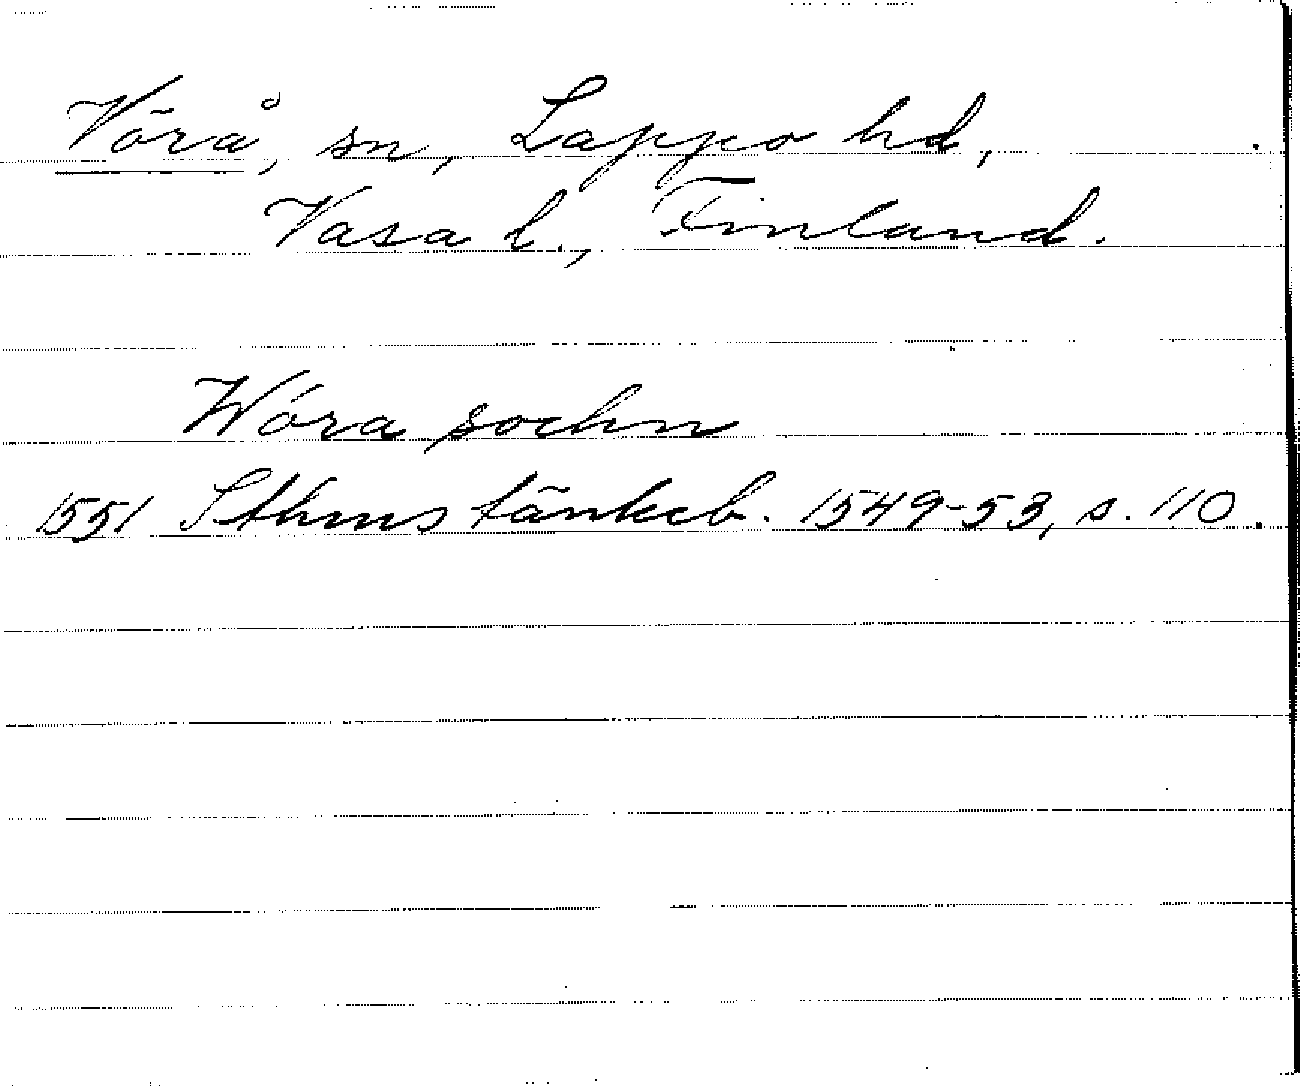 Vörå, sn, Lappo hd,
Vasa l., Finland.
Wóra sochn
1551 Sthms tänkeb. 1549-53, s. 110.